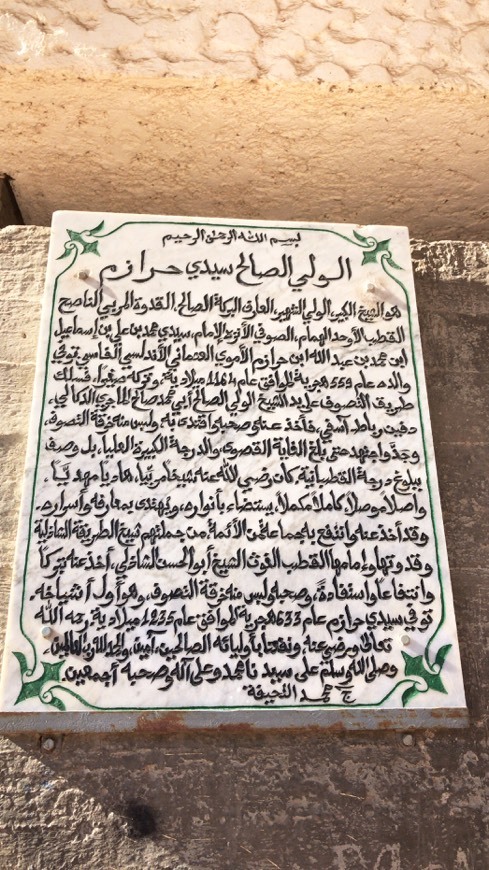 بسم الله الرحمن الرحيم
الولي الصالح سيدي حرازم
هو الشيخ الكبير، الولي الشهير، العارف البركة الصالح، القدوة المربي الناصح
القطب الأوحد الهمام، الصوفي الأنزه الإمام، سيدي محمد بن علي بن إسماعيل
ابن محمد بن عبد الله ابن حرازم الأموي العثماني الأندلسي الفاسي توفي
والده عام 559 هجرية الموافق عام 1164 ميلادية، وتركه صغيرا، فسلك
طريق التصوف على يد الشيخ الولي الصالح أبي محمد صالح الماجري الدكالي،
دفين رباط آسفي، فأخذ عنه وصحبه واقتدى به ولبس منه خرقة التصوف،
وجد واجتهد حتى بلغ الغاية القصوى والدرجة الكبيرة العليا، بل وصف
ببلوغ درجة القطبانية. كان رضي الله عنه شيخا مربيا، هاديا مهديا،
واصلا موصلا، كاملا مكملا، يستضاء بأنواره، ويهتدى بمعارفه وأسراره.
وقد أخذ عنه وانتفع به جماعة من الأئمة، من جملتهم شيخ الطريقة الشاذلية
وقدوتها وإمامها القطب الغوث الشيخ أبو الحسن الشاذلي، أخذ عنه تبركا
وانتفاعا واستفادة، وصحبه ولبس منه خرقة التصوف، وهو أول أشياخه.
توفي سيدي حرازم عام 633 هجرية الموافق عام 1235 ميلادية، رحمه الله
تعالى ورضي عنه، ونفعنا بأوليائه الصالحين، آمين، والحمد لله رب العالمين.
وصلى الله وسلم على سيدنا محمد وعلى آله وصحبه أجمعين.
محمد